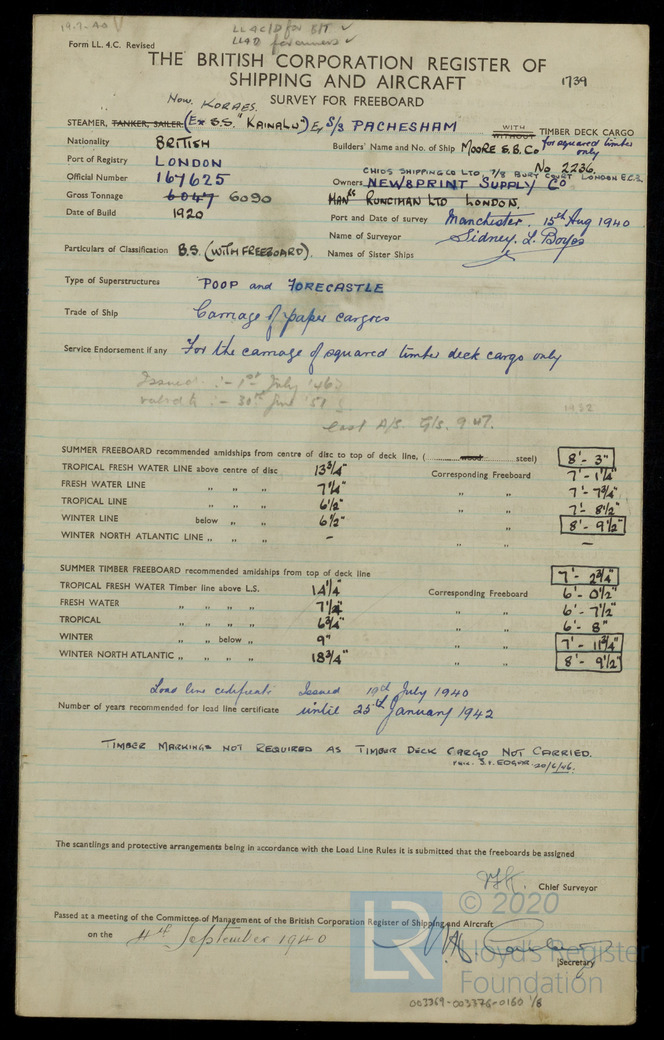 19.7.40
LL 4C/D for BIT ✓
LL4D for owners ✓
Form LL. 4.C. Revised
THE BRITISH CORPORATION REGISTER OF
SHIPPING AND AIRCRAFT
1739
SURVEY FOR FREEBOARD
Now. KORAES.
STEAMER, TANKER, SAILER (Ex S.S. "KAINALU") Ex S/S PACHESHAM
WITH WITHOUT TIMBER DECK CARGO
for squared timber only
Nationality BRITISH
Builders' Name and No. of Ship MOORE S.B. Co
No 2236.
Port of Registry LONDON
CHIOS SHIPPING CO LTD, 7/8 BURY COURT LONDON E.C.3.
Official Number 167625
Owners NEWSPRINT SUPPLY Co
Gross Tonnage 6047 6090
MANrs RUNCIMAN LTD LONDON.
Date of Build 1920
Port and Date of survey Manchester. 15th Aug 1940
Name of Surveyor Sidney. L. Boyes
Particulars of Classification B.S. (WITH FREEBOARD).
Names of Sister Ships
Type of Superstructures POOP and FORECASTLE
Trade of Ship Carriage of paper cargoes
Service Endorsement if any For the carriage of squared timber deck cargo only
Issued :- 1st July '46
valid to :- 30th June '51
1932
Last A/S. G/S. 9 47.
SUMMER FREEBOARD recommended amidships from centre of disc to top of deck line, (........wood........ steel) 8'- 3"
TROPICAL FRESH WATER LINE above centre of disc 13¾" Corresponding Freeboard 7'- 1¼"
FRESH WATER LINE " " " 7¼" " " 7'- 7¾"
TROPICAL LINE " " " 6½" " " 7'- 8½"
WINTER LINE below " " 6½" " 8'- 9½"
WINTER NORTH ATLANTIC LINE " " - " " -
SUMMER TIMBER FREEBOARD recommended amidships from top of deck line 7'- 2¾"
TROPICAL FRESH WATER Timber line above L.S. 14¼" Corresponding Freeboard 6'- 0½"
FRESH WATER " " " " 7¼" " " 6'- 7½"
TROPICAL " " " " 6¾" " " 6'- 8"
WINTER " " below " 9" " " 7'- 11¾"
WINTER NORTH ATLANTIC " " " " 18¾" " " 8'- 9½"
Load line certificate Issued 19th July 1940
Number of years recommended for load line certificate until 25th January 1942
TIMBER MARKINGS NOT REQUIRED AS TIMBER DECK CARGO NOT CARRIED.
EDGAR 20/6/46.
The scantlings and protective arrangements being in accordance with the Load Line Rules it is submitted that the freeboards be assigned
Chief Surveyor
Passed at a meeting of the Committee of Management of the British Corporation Register of Shipping and Aircraft
on the 4th September 1940
Secretary
LR
© 2020
Lloyd's Register
Foundation
003369-003376-0160 1/8